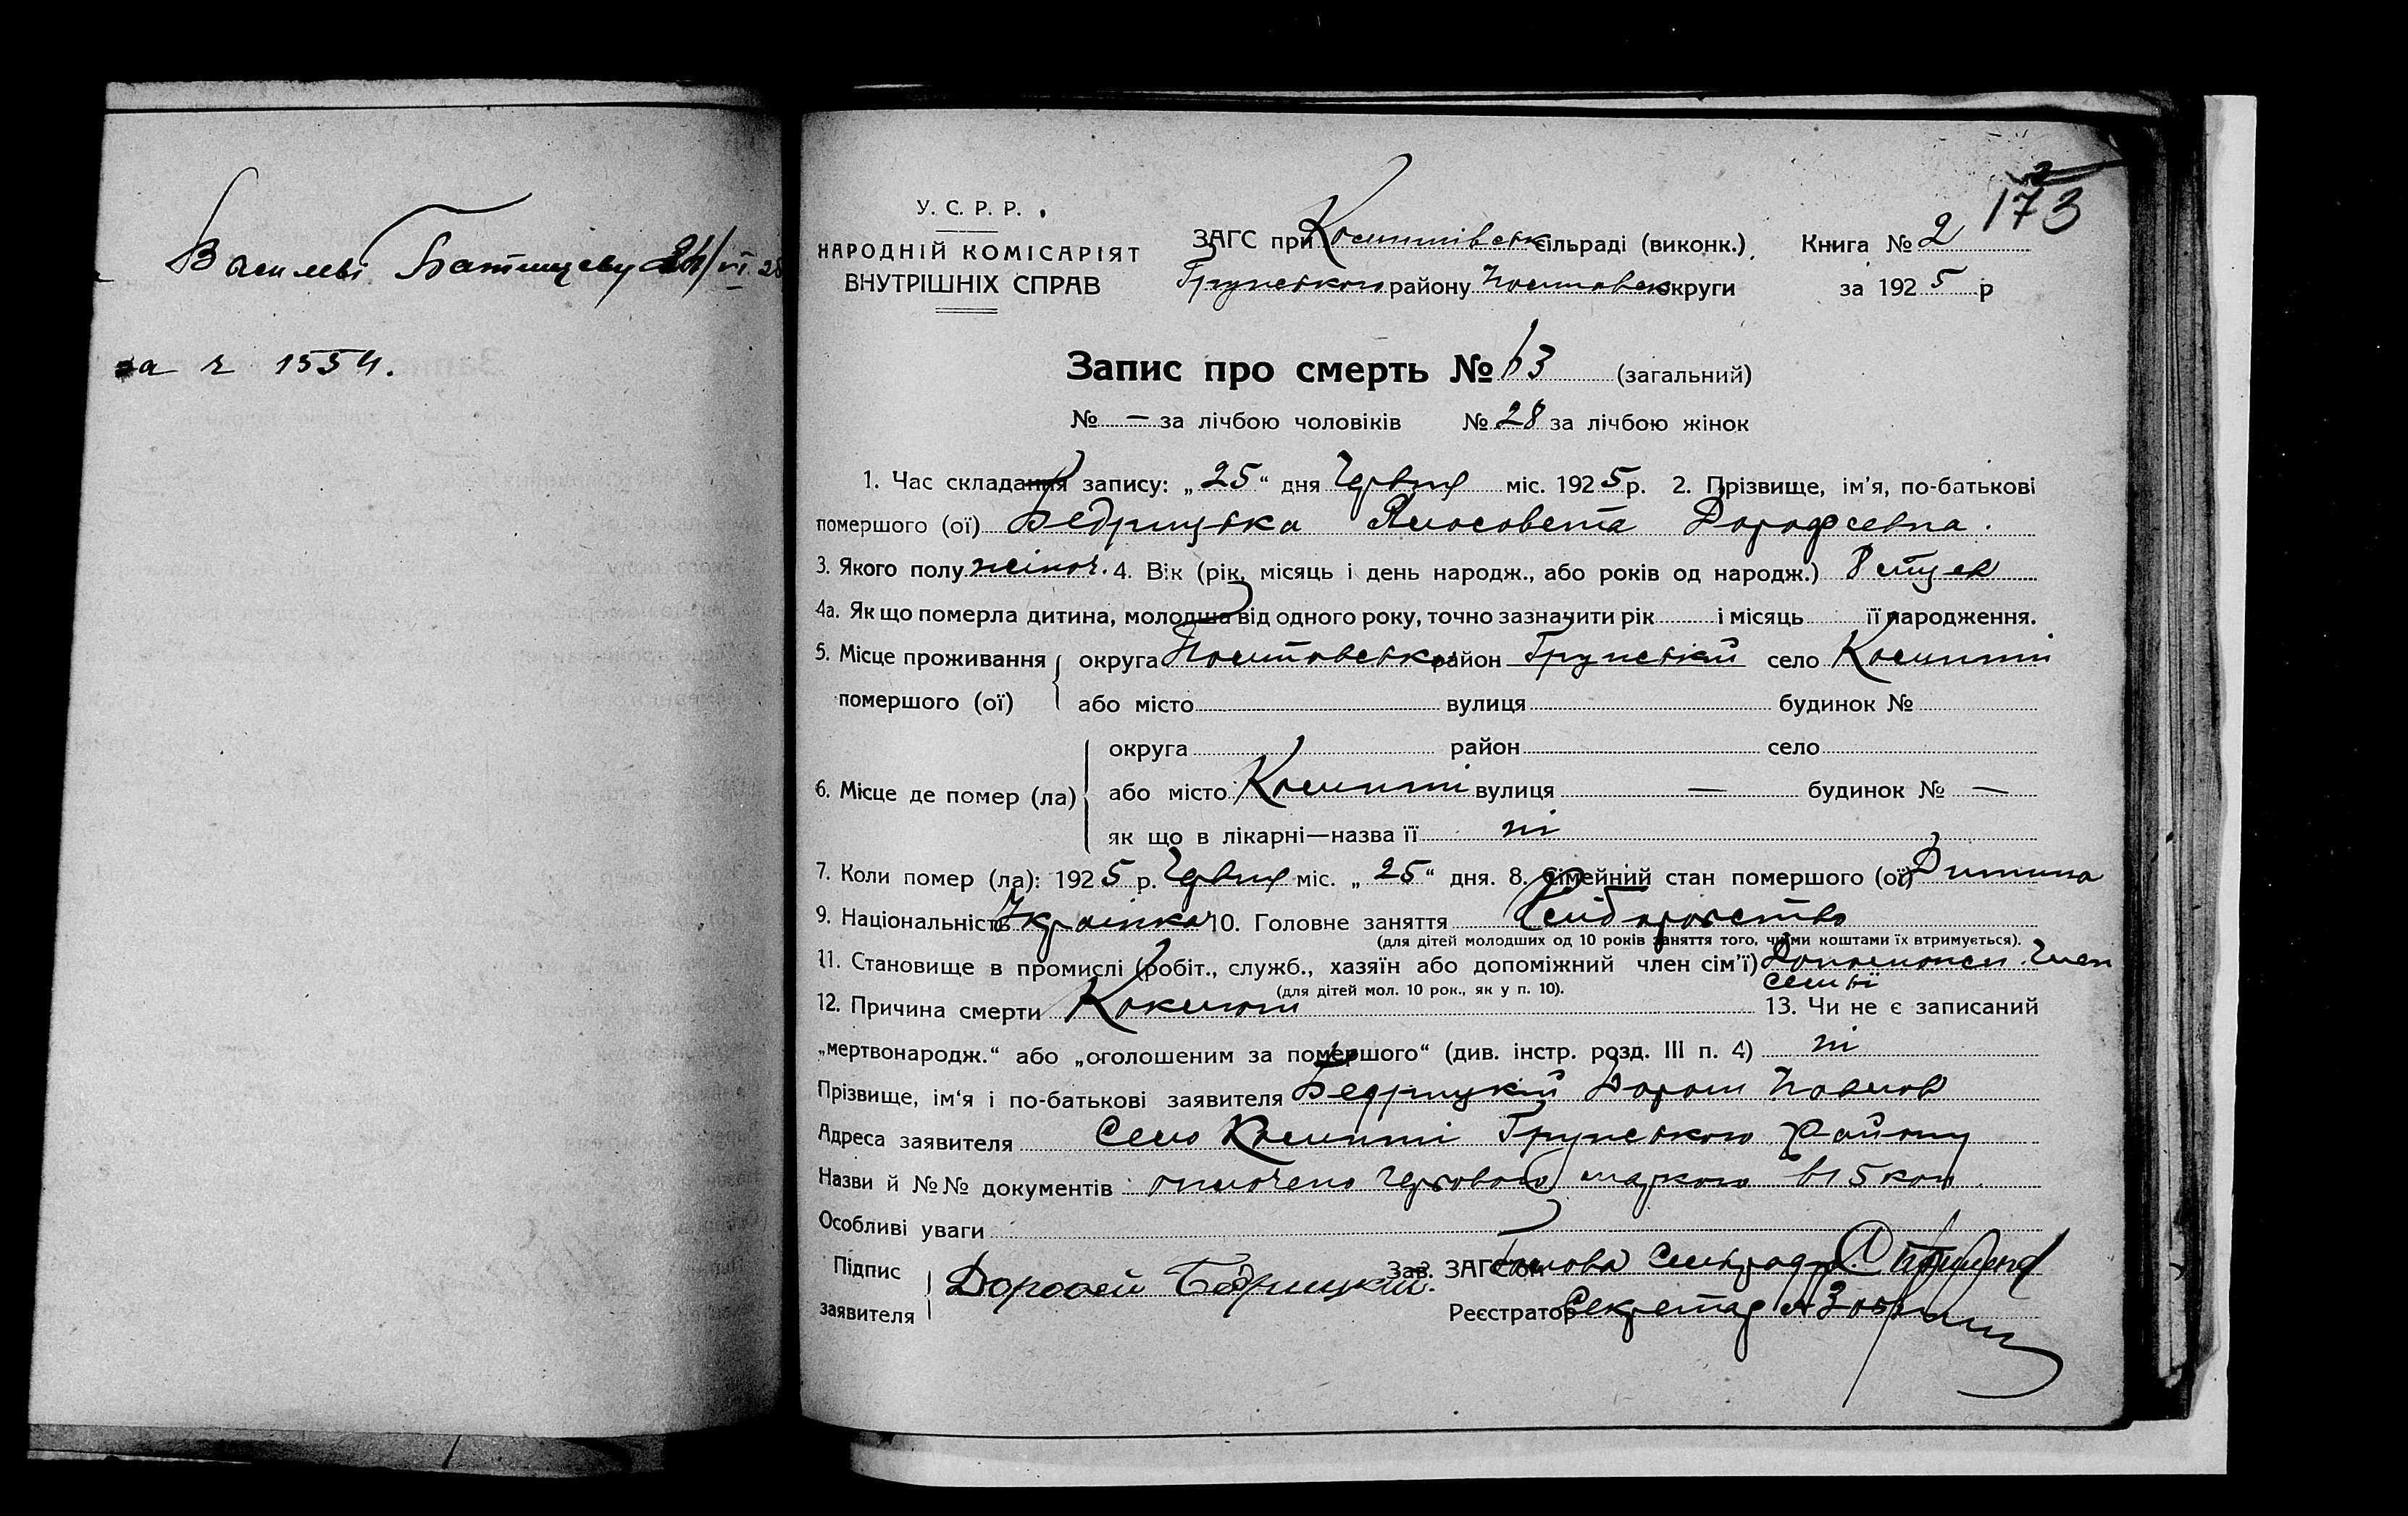 Василеві Батищеву 24/VI 28
за № 1554.
173
У. С. Р. Р.
НАРОДНІЙ КОМІСАРІЯТ
ВНУТРІШНІХ СПРАВ
ЗАГС при сільраді (виконк.). Книга № 2
Грунського району Полтавськ округи за 1925 р
Запис про смерть № 63 (загальний)
№ — за лічбою чоловіків № 28 за лічбою жінок
1. Час складання запису: „25“ дня Червня міс. 1925 р. 2. Прізвище, ім’я, по-батькові
помершого (ої) Бедрицька Лисовета Дорофеевна.
3. Якого полу жіноч. 4. Вік (рік, місяць і день народж., або років од народж.) 8
4а. Як що померла дитина, молодша від одного року, точно зазначити рік і місяць її народження.
5. Місце проживання округа Полтавська район Грунський село
помершого (ої) або місто вулиця будинок №
округа район село
6. Місце де помер (ла) або місто вулиця — будинок № —
як що в лікарні—назва її ні
7. Коли помер (ла): 1925 р. Червня міс. „25“ дня. 8. Сімейний стан помершого (ої) Дитина
9. Національність Українка 10. Головне заняття Хліборобство
(для дітей молодших од 10 років заняття того, чиїми коштами їх втримується).
11. Становище в промислі (робіт., служб., хазяїн або допоміжний член сім’ї) член
семьї
(для дітей мол. 10 рок., як у п. 10).
12. Причина смерти Коклюш 13. Чи не є записаний
„мертвонародж.“ або „оголошеним за помершого“ (див. інстр. розд. III п. 4) ні
Прізвище, ім‘я і по-батькові заявителя Бедрицкій Дорош Павлов
Адреса заявителя Село Грунського Району
Назви й №№ документів оплочено герковою маркою в 15 коп.
Особливі уваги
Підпис Зав. ЗАГС‘ом Голова Сельради
заявителя Дорофей Бедрицкий.
Реєстратор Секретар